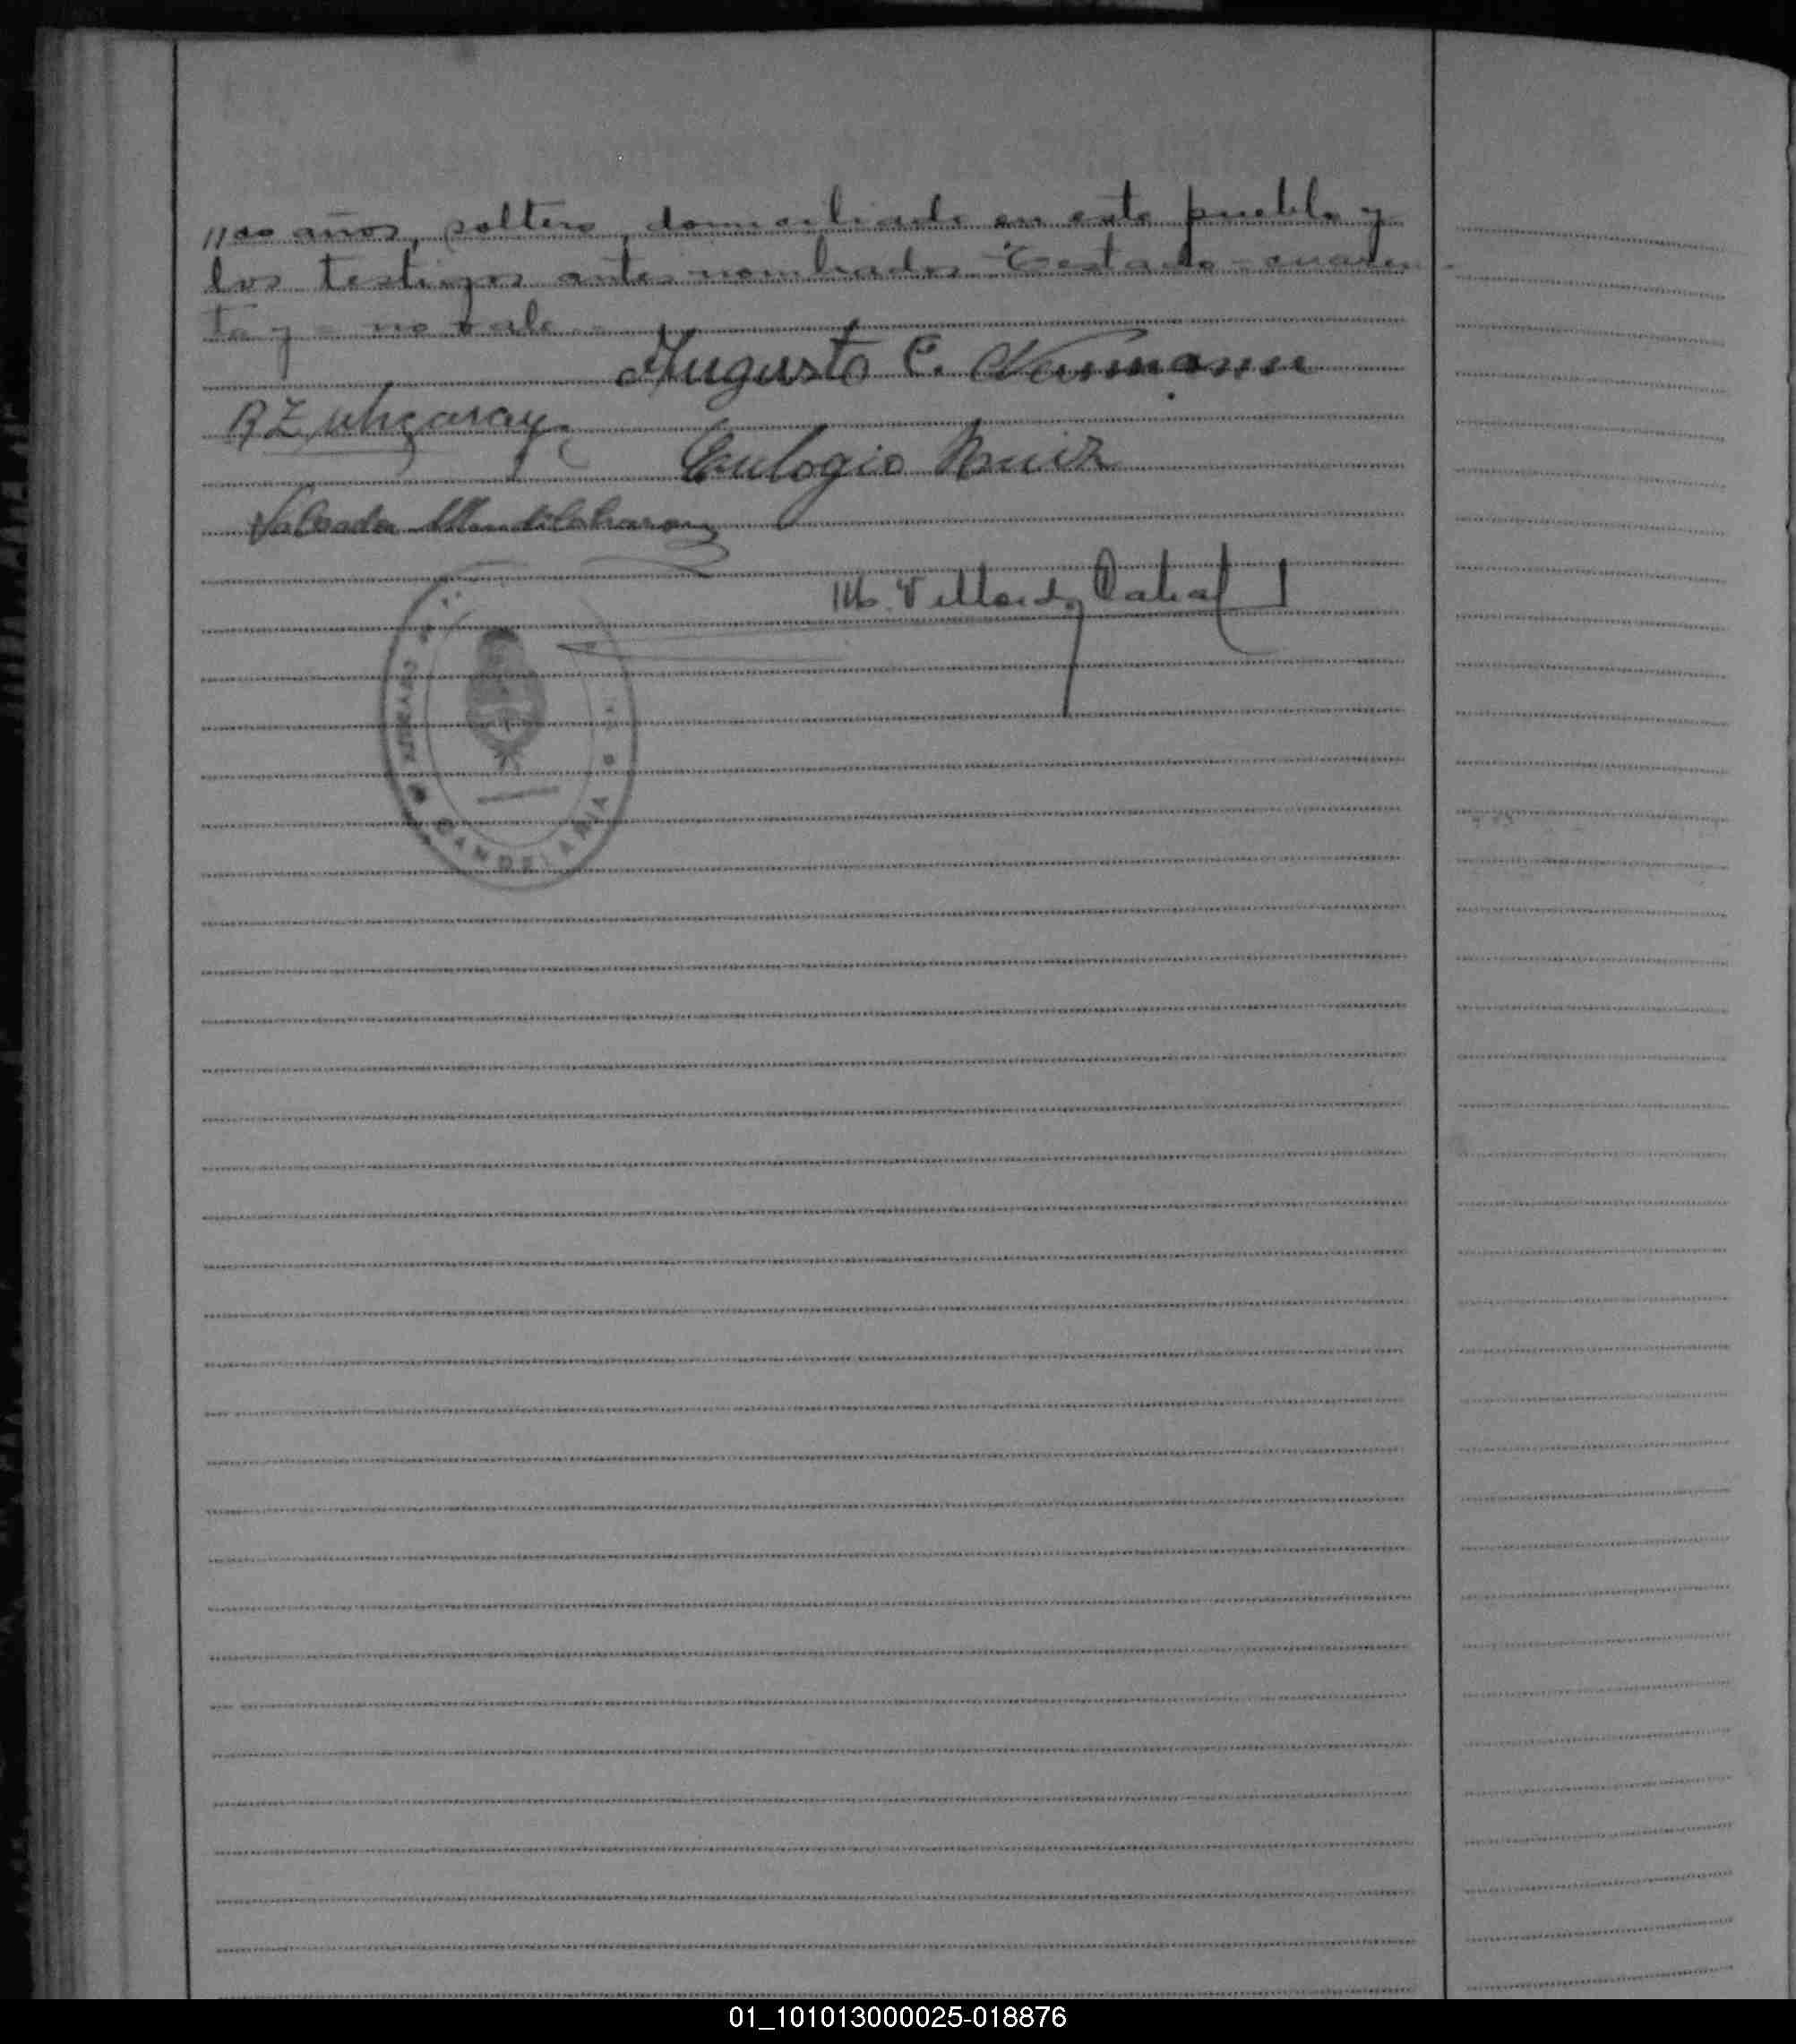 años, soltero, domiciliado en este pueblo y
los testigos antes nombrados Testado = cuaren
ta y = no vale =
Augusto C. Neumann
Eulogio Ruiz
Salvador
M. Cabral
CANDELARIA
01_101013000025-018876